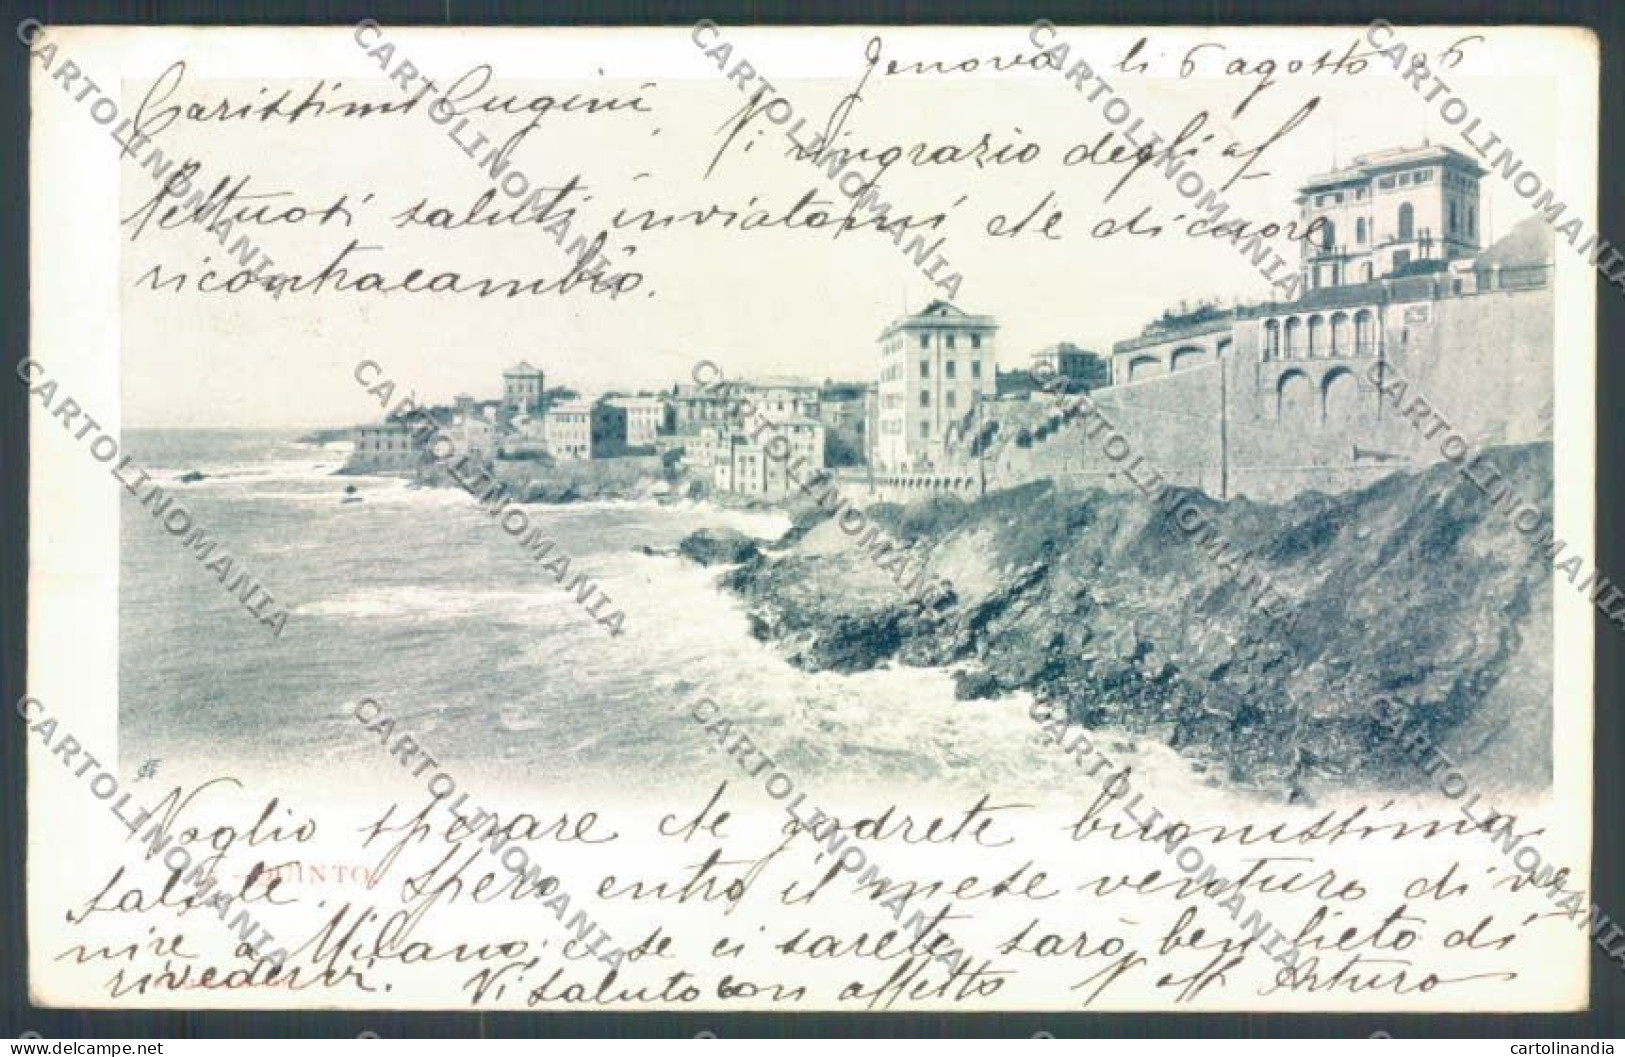 Genova li 6 agosto 06
Carissimi Cugini
Vi ringrazio degli af
fettuosi saluti inviatomi che di cuore
ricontracambio.
Voglio sperare che godrete buonissima
QUINTO
salute. Spero entro il mese venturo di ve
nire a Milano; e se ci sarete sarò ben lieto di
rivedervi. Vi saluto con affetto V aff Arturo
cartolinomania.com
cartolinandia
CARTOLINOMANIA